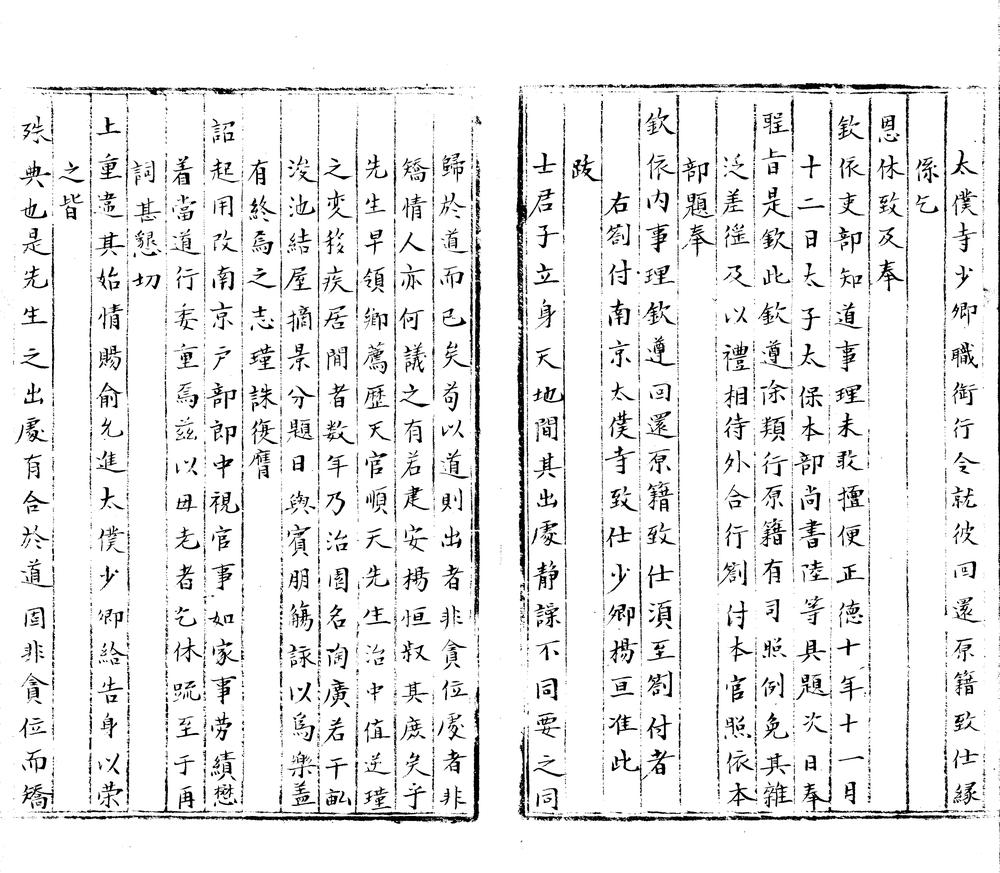 太僕寺少卿職銜行令就彼回還原籍致仕緣
係乞
恩休致及奉
欽依吏部知道事理未敢擅便正德十年十一月
十二日太子太保本部尚書陸等具題次日奉
聖旨是欽此欽遵除類行原籍有司照例免其雜
泛差徭及以禮相待外合行劄付本官照依本
部題奉
欽依內事理欽遵回還原籍致仕須至劄付者
右劄付南京太僕寺致仕少卿楊亘准此
跋
士君子立身天地間其出處靜躁不同要之同
歸於道而已矣苟以道則出者非貪位處者非
矯情人亦何議之有若建安楊恒叔其庶矣乎
先生早領鄉薦歷天官順天先生治中值逆瑾
之变移疾居閒者数年乃治園名陶廣若干畝
浚池結屋摘景分題日與賓朋觴詠以爲樂盖
有終焉之志瑾誅復膺
詔起用改南京户部郎中視官事如家事劳績懋
着當道行委重焉兹以毋老者乞休䟽至于再
詞甚懇切
上重違其始情賜俞允進太僕少卿給告身以荣
之皆
殊典也是先生之出處有合於道固非貪位而矯